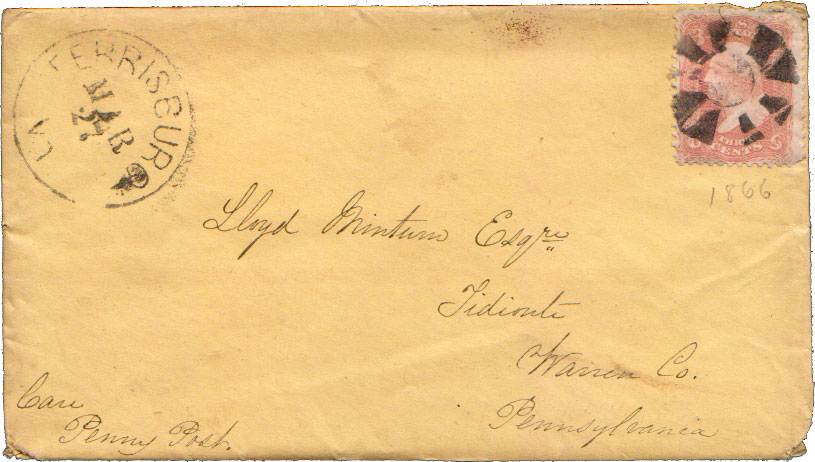 FERRISBURG
MAR
27
THREE
CENTS
1866
Lloyd Minturn Esqre
Tidioute
Warren Co.
Pennsylvania
Care
Penny Post.